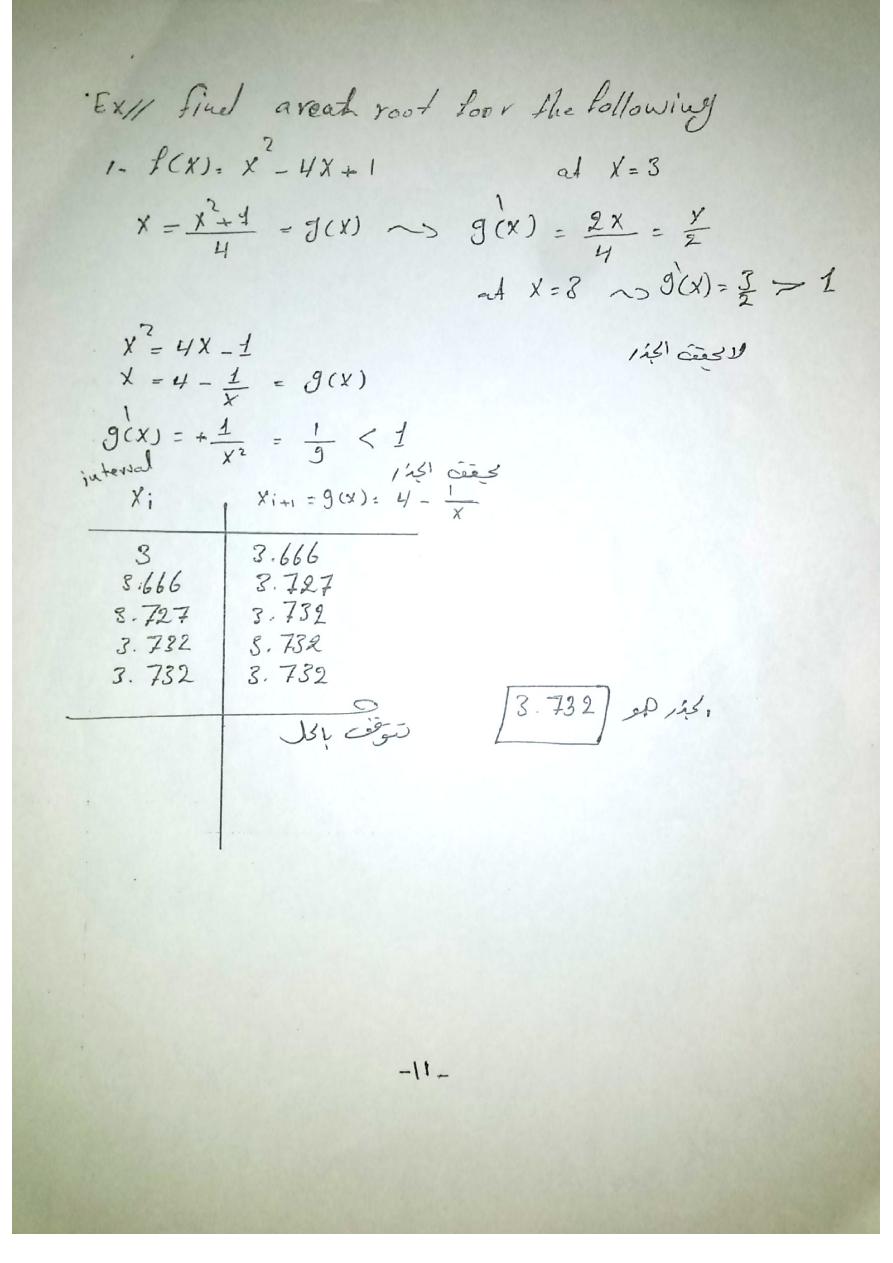 Ex// find a reath root foor the following
1- f(x) = x² - 4x + 1 at x = 3
x = x²+1/4 = g(x) ⇝ g'(x) = 2x/4 = x/2
at x = 3 ⇝ g'(x) = 3/2 > 1
لا يحقق الجذر
x² = 4x - 1
x = 4 - 1/x = g(x)
g'(x) = + 1/x² = 1/9 < 1
interval يحقق الجذر
xi xi+1 = g(x) = 4 - 1/x
3 3.666
3.666 3.727
3.727 3.732
3.732 3.732
3.732 3.732
نتوقف بالحل
الجذر هو 3.732
-١١-